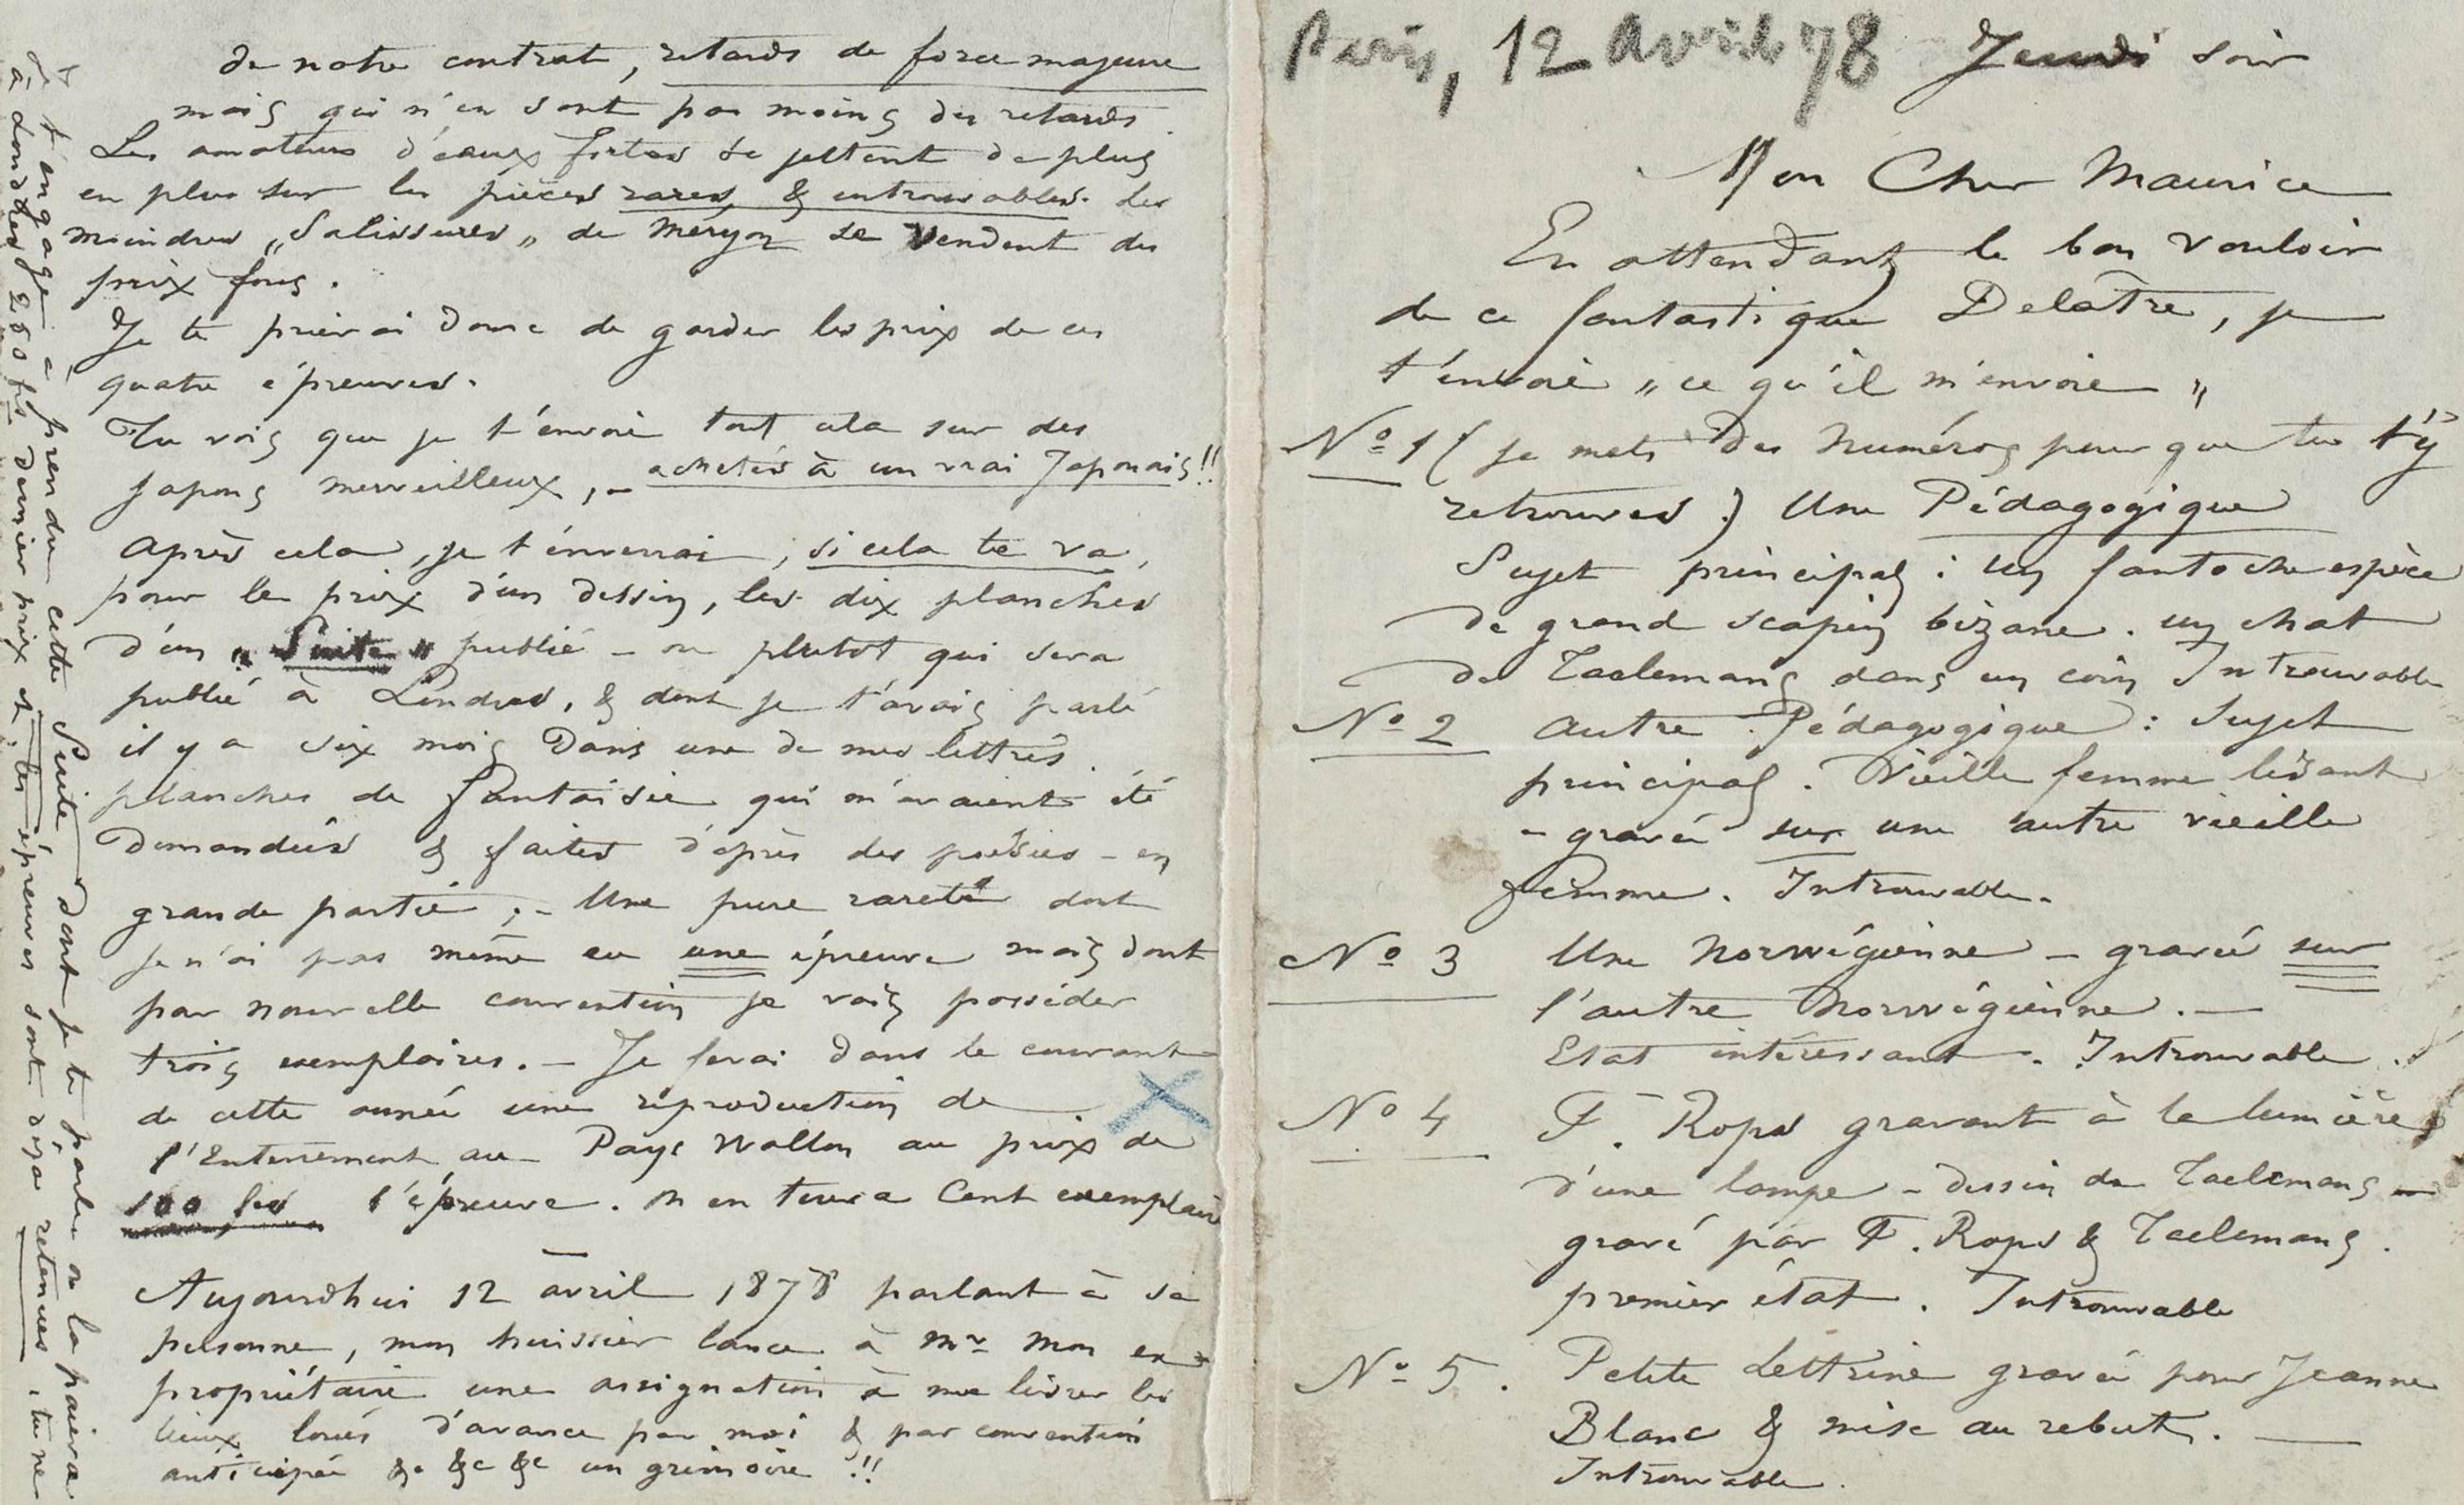 de notre contrat, retards de force majeure
mais qui n'en sont pas moins des retards.
Les amateurs d'eaux fortes se jettent de plus
en plus sur les pièces rares, & introuvables. Les
moindres „Salissures„ de Meryon se vendent des
prix fous.
Je te prierai donc de garder les prix de ces
quatre épreuves.
Tu vois que je t'envoie tout cela sur des
japons merveilleux, – achetés à un vrai Japonais!!
Après cela, je t'enverrai, si cela te va,
pour le prix d'un dessin, les dix planches
d'un „Suite„ publié – ou plutot qui sera
publié à Londres, & dont je t'avais parlé
il y a six mois dans une de mes lettres.
planches de fantaisie qui m'avaient été
demandées & faites d'après des poésies – en
grande partie; – Une pure rareté dont
je n'ai pas même eu une épreuve mais dont
par nouvelle convention je vais posséder
trois exemplaires. – Je ferai dans le courant
de cette année une reproduction de
l'Enterrement au Pays Wallon au prix de
100 frs l'épreuve. On en tirera Cent exemplaires
Aujourdhui 12 avril 1878 parlant à sa
personne, mon huissier lance à Mr mon ex
propriétaire une assignation à me livrer les
lieux loués d'avance par moi & par convention
anticipée &c &c &c un grimoire !!
Je t'engage à prendre cette Suite dont je te parle on la paiera
à Londres 250 frs dernier prix et, les épreuves sont déja retenues, tu ne
Paris, 12 Avril 78 Jeudi soir
Mon Cher Maurice
En attendant le bon vouloir
de ce fantastique Delâtre, je
t'envoie „ce qu'il m'envoie„
No 1 (je mets des Numéros pour que tu t'y
retrouves.) Une Pédagogique
Sujet principal: un fantoche espèce
de grand scapin bizarre. un chat
de Taelemans dans un coin Introuvable
No 2 Autre Pédagogique: Sujet
principal. Vieille femme lisant
– gravée sur une autre vieille
femme. Introuvable.
No 3 Une Norwégienne – gravée sur
l'autre Norwégienne. —
Etat intéressant. Introuvable.
No 4 F. Rops gravant à la lumière
d'une lampe – dessin de Taelemans –
gravé par F. Rops & Taelemans.
premier état. Introuvable
No 5. Petite Lettrine gravée pour Jeanne
Blanc & mise au rebut. —
Introuvable.